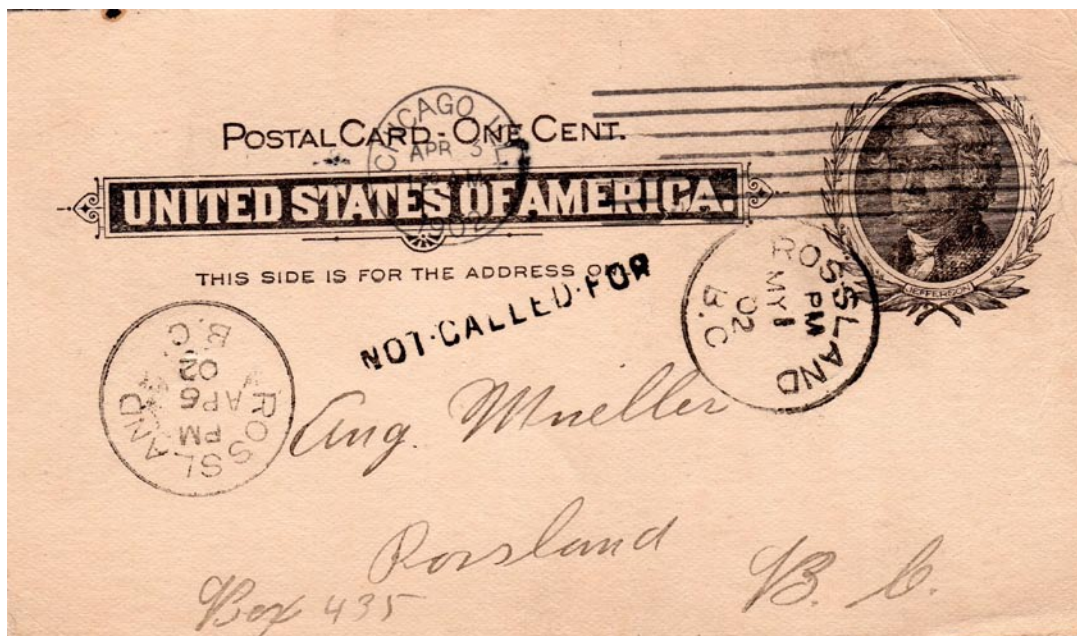 POSTAL CARD - ONE CENT.
CHICAGO, ILL
APR 3
1902
UNITED STATES OF AMERICA.
THIS SIDE IS FOR THE ADDRESS ONLY
JEFFERSON
NOT·CALLED·FOR
ROSSLAND
PM
MY 1
02
B.C
ROSSLAND
PM
AP 6
02
B.C.
Aug. Mueller
Rossland
B. C.
Box 435